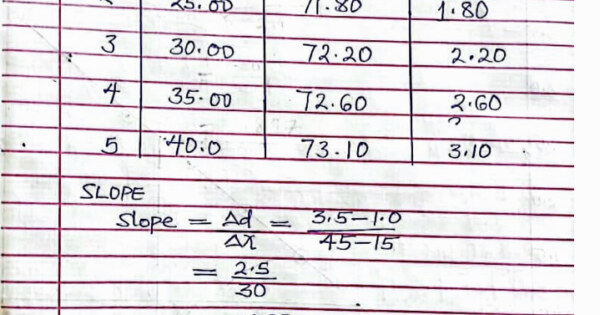 25.00 71.80 1.80
3 30.00 72.20 2.20
4 35.00 72.60 2.60
5 40.0 73.10 3.10
SLOPE
Slope = Δd/Δx = 3.5-1.0/45-15
= 2.5/30